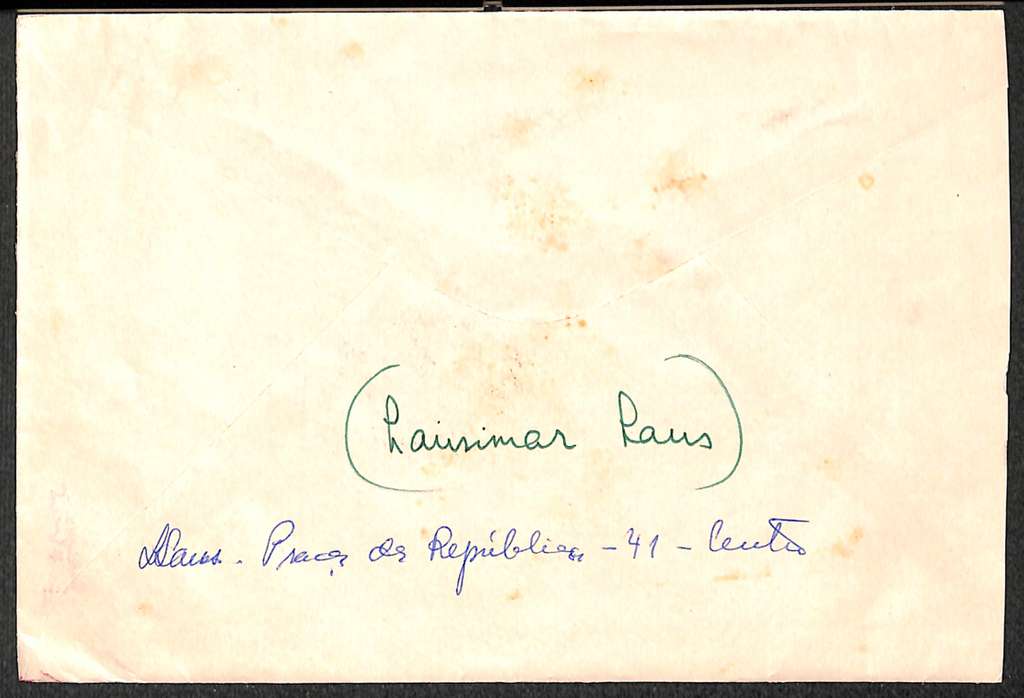 (Lausimar Laus)
Laus. Praça da República - 41 - Centro